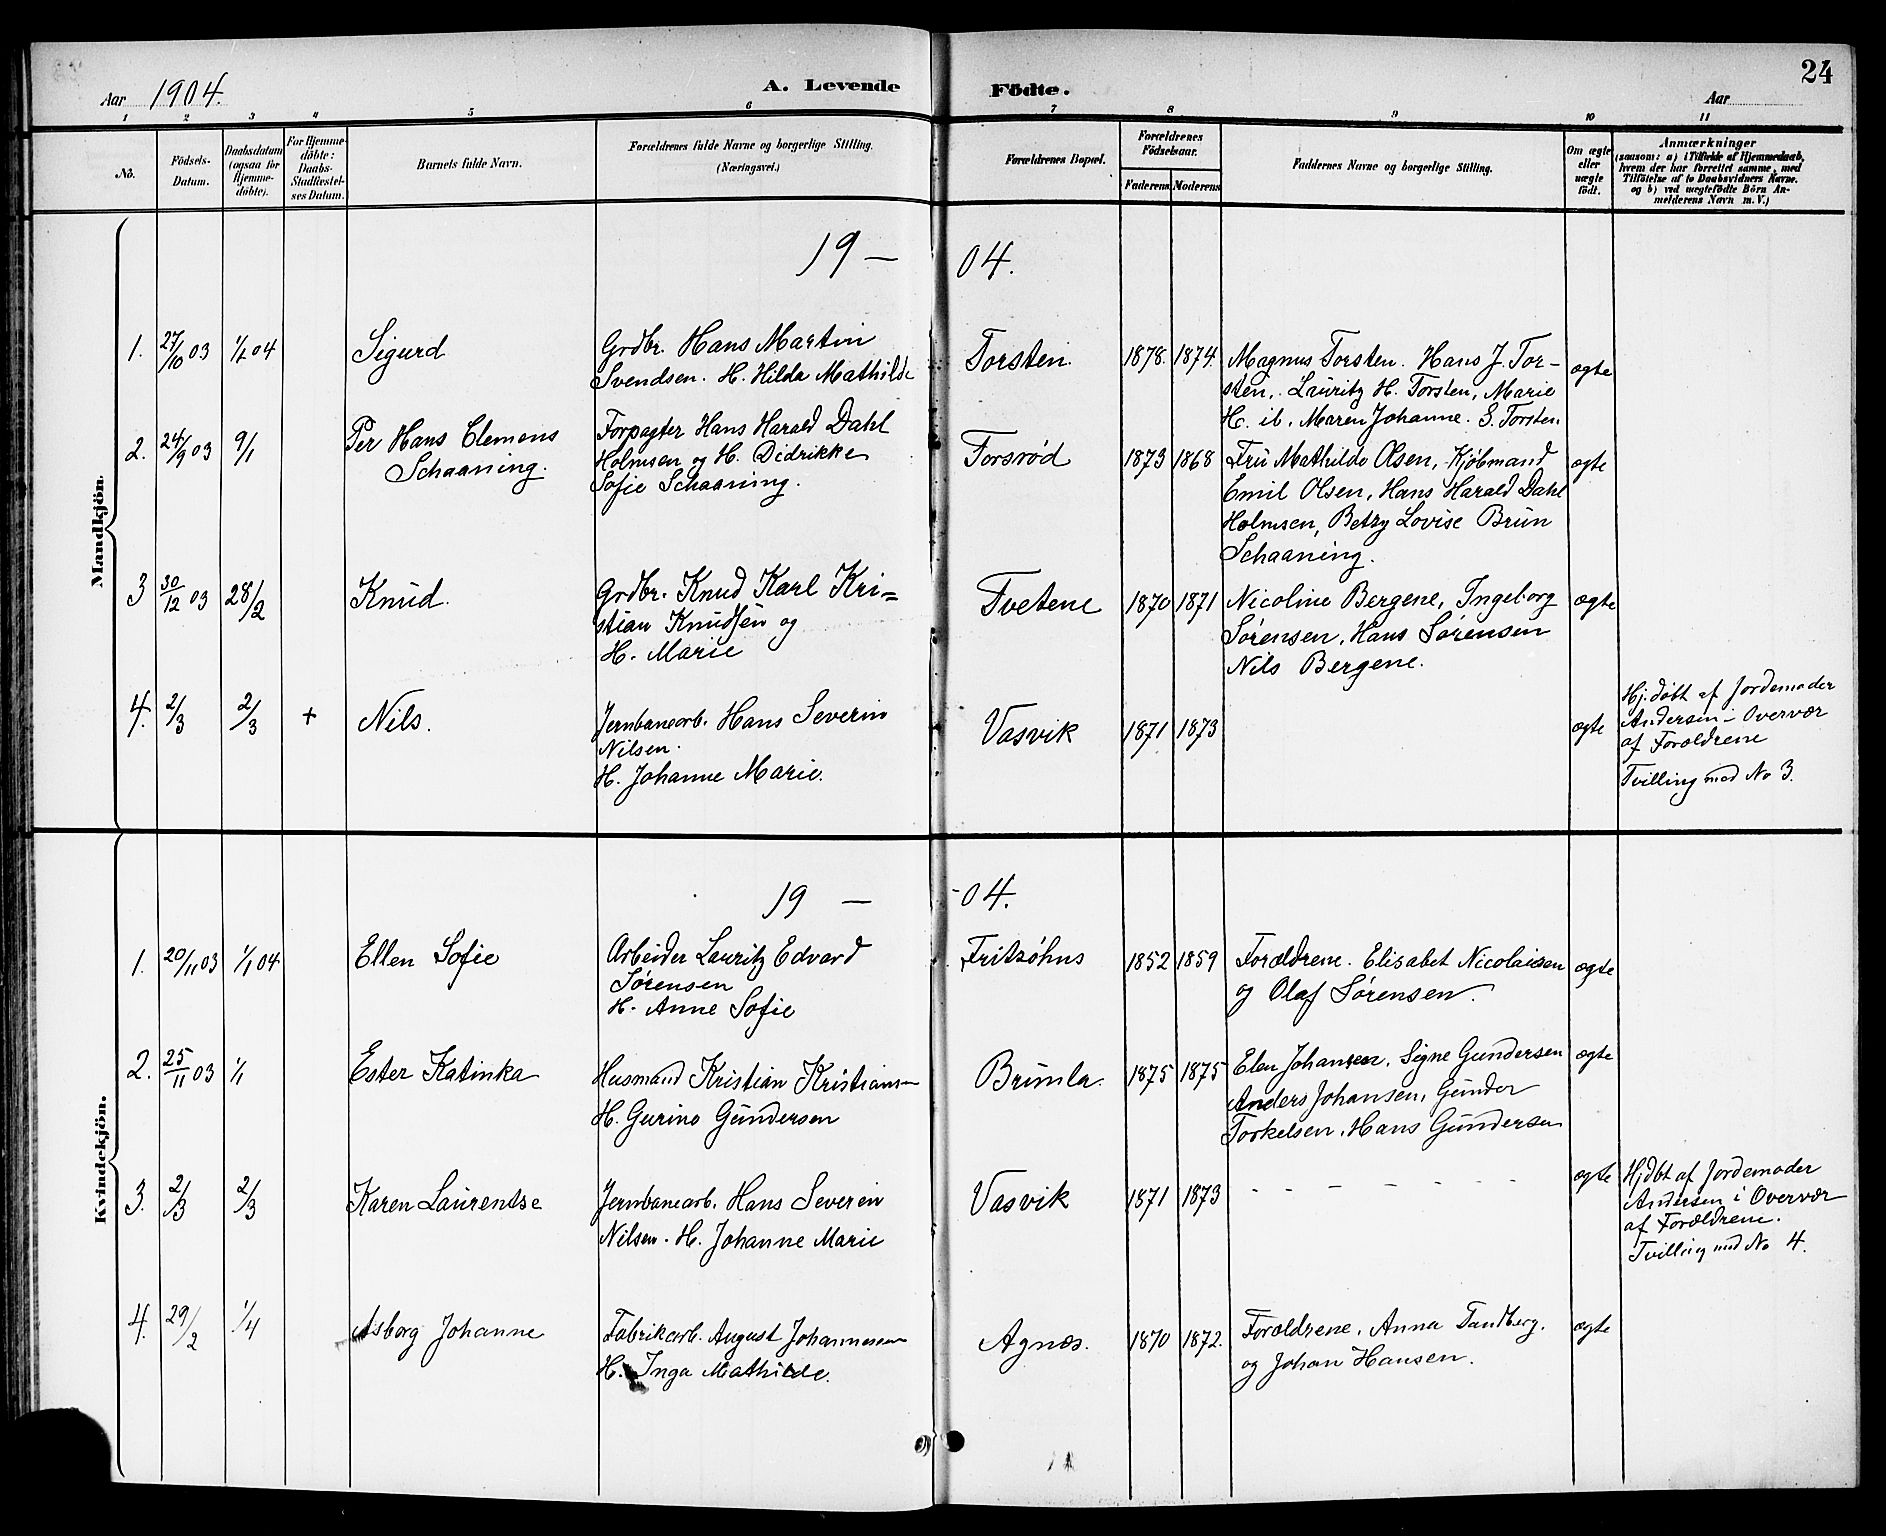 24
Aar 1904.
A. Levende Födte.
Aar
1 2 3 4 5 6 7 8 9 10 11
No.
Födsels-
Datum.
Daabsdatum
(ogsaa for
Hjemme-
döbte).
For Hjemme-
döbte:
Daabs-
Stadfæstel-
ses Datum.
Barnets fulde Navn.
Forældrenes fulde Navne og borgerlige Stilling.
(Næringsvei.)
Forældrenes Bopæl.
Forældrenes
Födselsaar.
Faderens Moderens
Faddernes Navne og borgerlige Stilling.
Om ægte
eller
uægte
födt.
Anmærkninger
(saasom: a) i Tilfælde af Hjemmedaab,
hvem der har forrettet samme, med
Tilföielse af to Daabsvidners Navne.
og b) ved uægtefödte Börn An-
melderens Navn m. V.)
Mandkjön.
19 — 04.
1. 27/10 03 1/1 04
Sigurd
Grdbr. Hans Martin
Svendsen. H. Hilda Mathilde
Torsten.
1878. 1874.
Magnus Torsten. Hans J. Tor-
sten, Lauritz H. Torsten, Marie
H. ib. Maren Johanne. S. Torsten.
ægte
2. 24/9 03 9/1
Per Hans Clemens
Schaaning.
Forpagter Hans Harald Dahl
Holmsen og H. Didrikke
Sofie Schaaning.
Torsrød
1873 1868
Fru Mathilde Olsen, Kjøbmand
Emil Olsen, Hans Harald Dahl
Holmsen, Betzy Lovise Brun
Schaaning.
ægte
3 30/12 03 28/2
Knud.
Grdbr. Knud Karl Kri=
stian Knudsen og
H. Marie
Tvetene
1870 1871
Nicoline Bergene, Ingeborg
Sørensen, Hans Sørensen
Nils Bergene.
ægte
4. 2/3 2/3 +
Nils.
Jernbanearb. Hans Severin
Nilsen.
H. Johanne Marie.
Vasvik
1871 1873
ægte
Hj. døbt af Jordemoder
Andersen i Overvær
af Forældrene
Tvilling med No 3.
Kvindekjön.
19 — -04.
1. 20/11 03 1/1 04
Ellen Sofie
Arbeider Lauritz Edvard
Sørensen
H. Anne Sofie
Fritzøhus
1852 1859
Forældrene. Elisabet Nicolaisen
og Olaf Sørensen.
ægte
2. 25/11 03 1/1
Ester Katinka
Husmand Kristian Kristiansen
H. Gurine Gundersen
Brunla.
1875 1875
Elen Johansen. Signe Gundersen
Anders Johansen, Gunder
Torkelsen. Hans Gundersen
ægte
3. 2/3 2/3
Karen Laurentse
Jernbanearb. Hans Severin
Nilsen. H. Johanne Marie
Vasvik
1871 1873
- - - - - - -
ægte
Hjdbt af Jordemoder
Andersen i Overvær
af Forældrene.
Tvilling med No 4.
4. 29/2 1/4
Asborg Johanne
Fabrikarb. August Johannessen
H. Inga Mathilde.
Agnæs.
1870 1872.
Forældrene, Anna Tandberg.
og Johan Hansen.
ægte